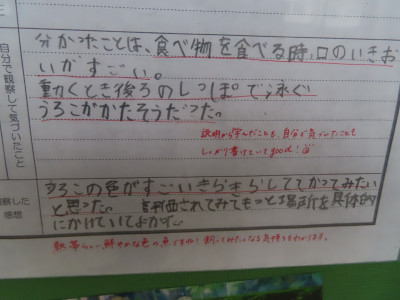 自分で観察して気づいたこと
分かったことは、食べ物を食べる時、口のいきお
いがすごい。
動くとき後ろのしっぽで泳ぐ
うろこがかたそうだった。
説明から学んだことも、自分で気づいたことも
しっかり書けていてgood!
観察した
感想
うろこの色がすごいきらきらしててかってみたい
と思った。 評価されてみてもっと場所を具体的
にかけていてよかった
熱帯らしい鮮やかな色の魚ですね!飼ってみたくなる気持ちもわかります。